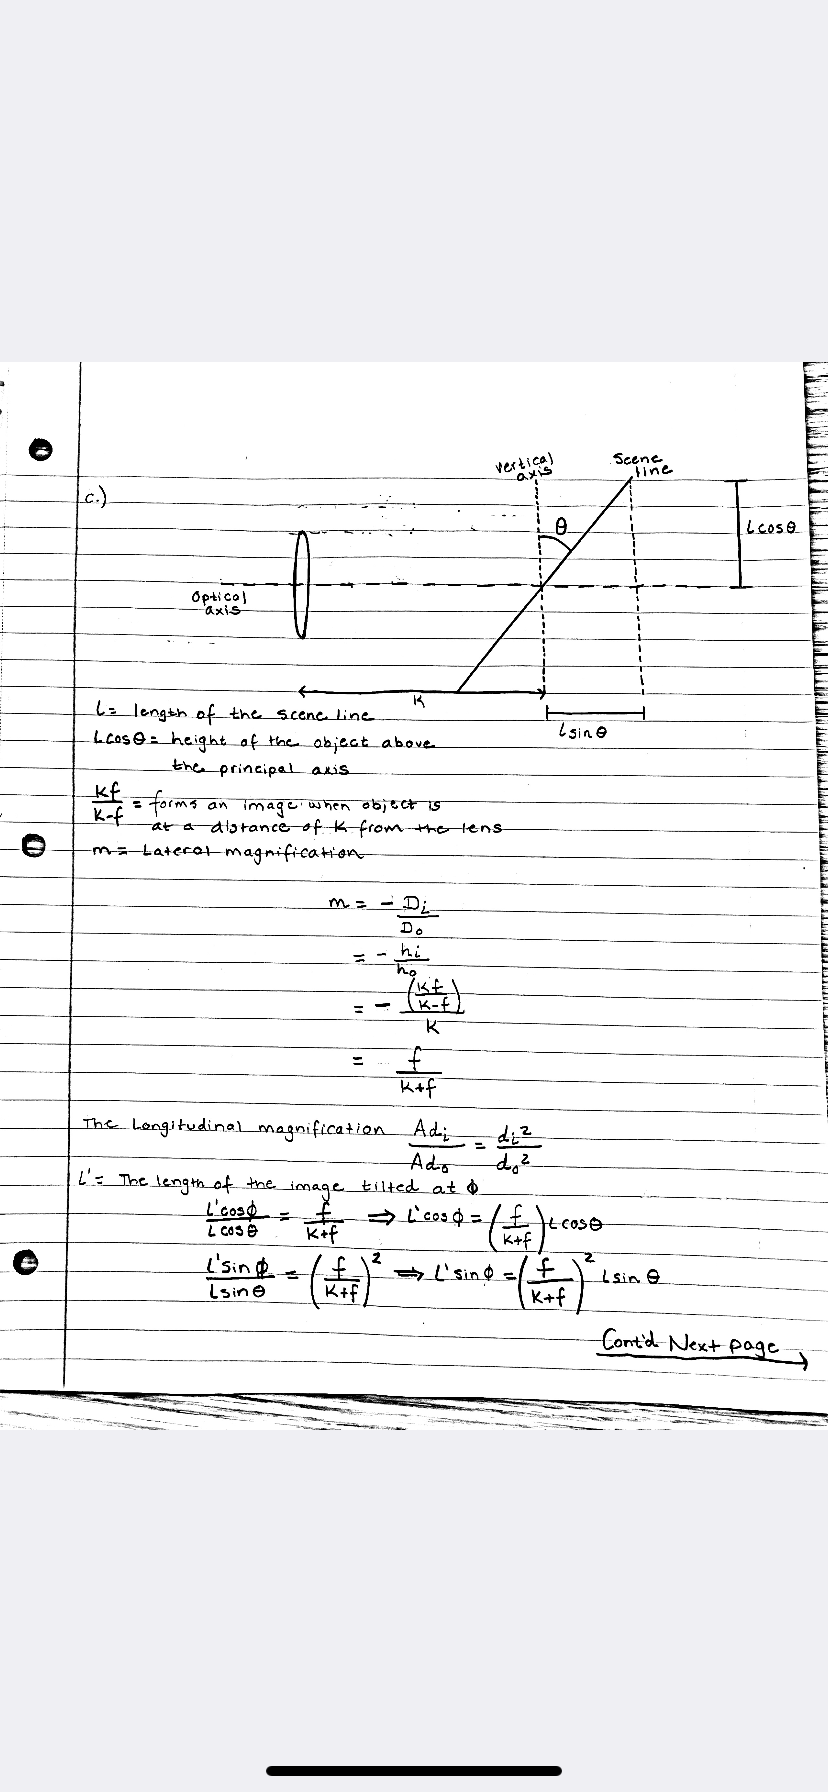 c.)
vertical axis
Scene line
θ
Lcosθ
Optical axis
K
Lsinθ
L= length of the scene line
Lcosθ= height of the object above
the principal axis
Kf/K-f = forms an image when object is
at a distance of K from the lens
m= Lateral magnification
m = - Di/Do
= - hi/ho
= - (Kf/K-f)/K
= f/K+f
The Longitudinal magnification Adi/Ado = di²/do²
L'= The length of the image tilted at ϕ
L'cosϕ/Lcosθ = f/K+f ⟹ L'cosϕ = (f/K+f) Lcosθ
L'sinϕ/Lsinθ = (f/K+f)² ⟹ L'sinϕ = (f/K+f)² Lsinθ
Cont'd Next page